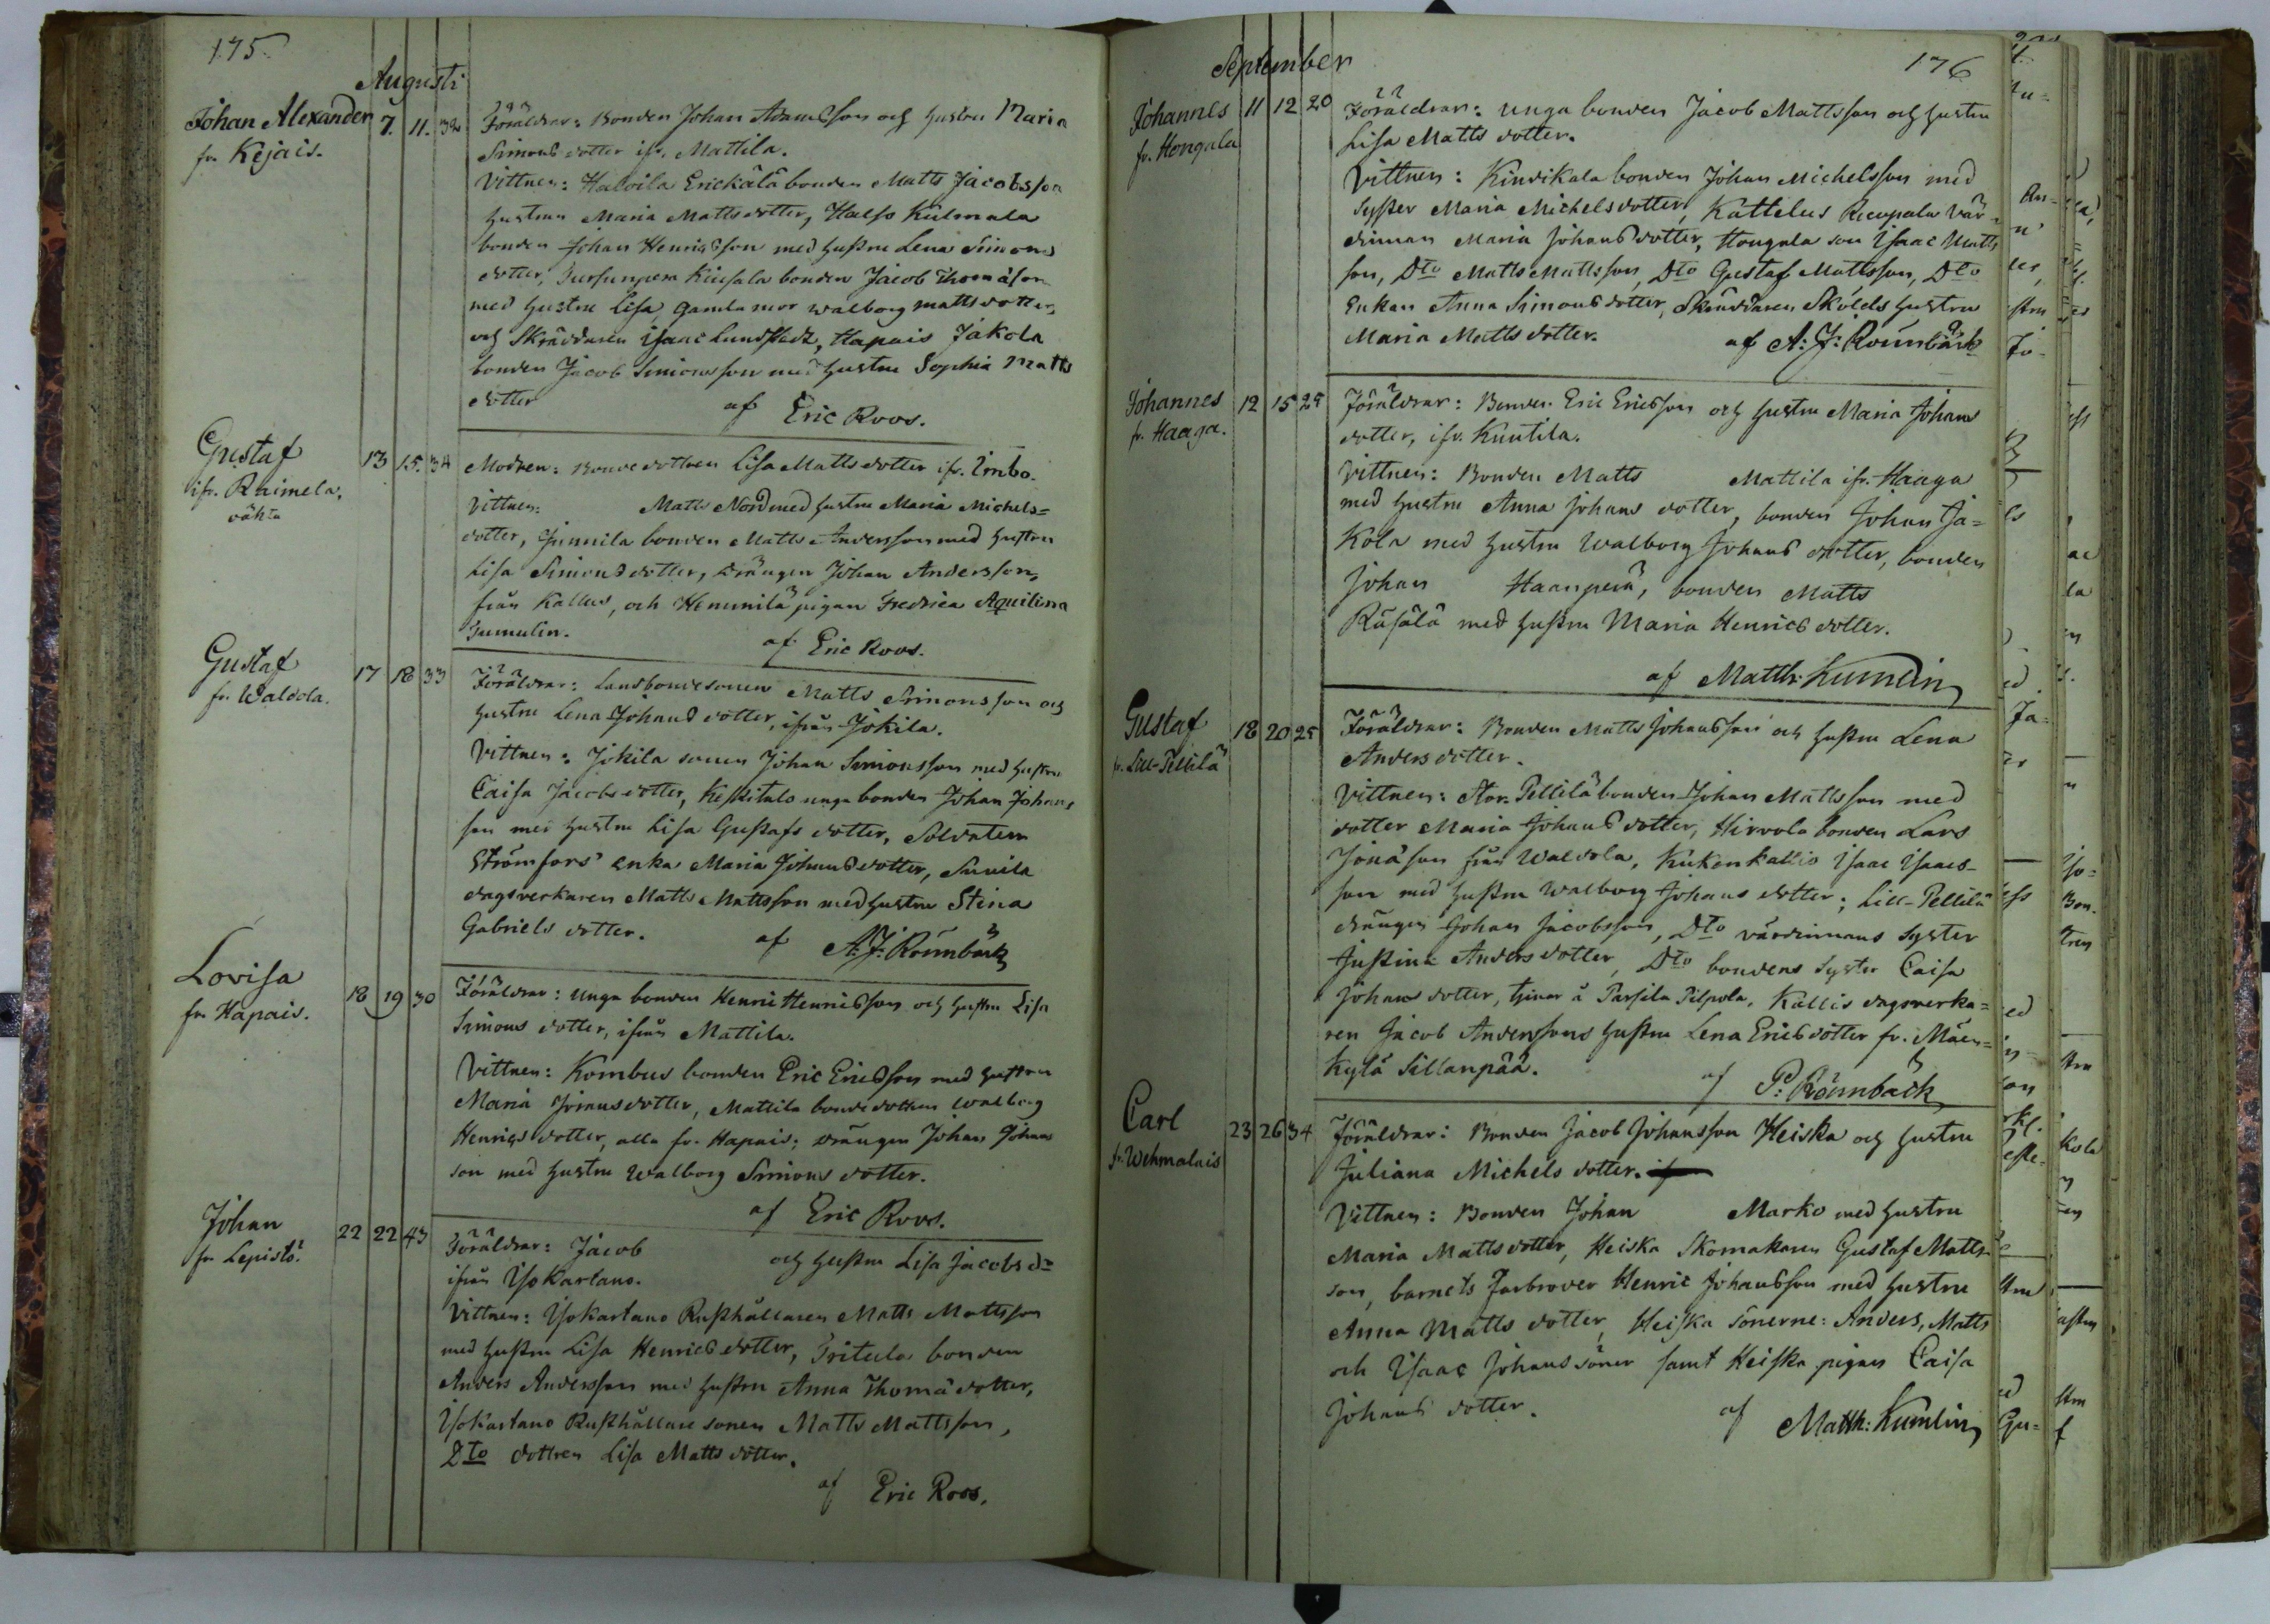 175.
Augusti
Johan Alexander 7. 11. 32
fr. Kejais.
Föräldrar: Bonden Johan Adamsson och hustru Maria
Simons dotter ifr. Mattila.
Vittnen: Erickälä bonden Matts Jacobsson
hustrun Maria Matts dotter, Kulmala
bonden Johan Henricsson med hustru Lena Simons
dotter, Kiusala bonden Jacob Thomasson
med hustru Lisa, gamla mor Walborg Matts dotter,
och Skräddaren Isaac Lundstedt, Hapais Jakola
bonden Jacob Simonsson med hustru Sophia Matts
dotter
af Eric Roos.
Gustaf 13 15. 34
ifr. Raimela,
oäkta
Modren: Bonde dottren Lisa Matts dotter ifr. Imbo.
Vittnen: Matts Nord med hustru Maria Michels=
dotter, Junnila bonden Matts Andersson med hustru
Lisa Simons dotter, drängen Johan Andersson,
från Kallus, och Hemmilä pigan Fredrica Aquilina
af Eric Roos.
Gustaf 17 18 33
fr. Waldola.
Föräldrar: Landbondesonen Matts Simonsson och
hustru Lena Johans dotter, ifrån Jokila.
Vittnen: Jokila sonen Johan Simonsson med hustru
Caisa Jacobs dotter, Keskitalo unga bonden Johan Johans
son med hustru Lisa Gustafs dotter, Soldaten
Strömfors' enka Maria Johans dotter, Sunila
dagsverkaren Matts Mattsson med hustru Stina
Gabriels dotter.
af A. J. Rönnbäck
Lovisa 18 19 30
fr. Hapais.
Föräldrar: Unga bonden Henric Henricsson och hustru Lisa
Simons dotter, ifrån Mattila.
Vittnen: Kombus bonden Eric Ericsson med hustru
Maria Johansdotter, Mattila bonde dottren Walborg
Henrics dotter, alla fr. Hapais; drängen Johan Johans
son med hustru Walborg Simons dotter.
af Eric Roos.
Johan 22 22 43
fr. Lepistö.
Föräldrar: Jacob och hustru Lisa Jacobs dr
ifrån Isokartano.
Vittnen: Isokartano Rusthållaren Matts Mattsson
med hustru Lisa Henrics dotter, Pritula bonden
Anders Andersson med hustru Anna Thomä dotter,
Isokartano Rusthållare sonen Matts Mattsson,
Dto dottren Lisa Matts dotter.
af Eric Roos.
September
176
Johannes 11 12 20
fr. Hongala
Föräldrar: unga bonden Jacob Mattsson och hustru
Lisa Matts dotter.
Vittnen: Kindikala bonden Johan Michelsson med
Syster Maria Michels dotter, Kattelus vär=
dinnan Maria Johans dotter, Hongala son Isaac Matts
son, Dto Matts Mattsson, Dto Gustaf Mattsson, Dto
Enkan Anna Simons dotter, Skräddaren Skölds hustru
Maria Matts dotter.
af A. J. Rönnbäck
Johannes 12 15 25
fr. Haaga.
Föräldrar: Bonden Eric Ericsson och hustru Maria Johans
dotter, ifr. Knutila.
Vittnen: Bonden Matts Mattila ifr. Haaga
med hustru Anna Johans dotter, bonden Johan Ja=
kola med hustru Walborg Johans dotter, bonden
Johan Haanperä, bonden Matts
Räsälä med hustru Maria Henrics dotter.
af Matth: Kumlin
Gustaf 18 20 25
fr. Lill-Pellilä
Föräldrar: Bonden Matts Johansson och hustru Lena
Anders dotter.
Vittnen: Stor-Pellilä bonden Johan Mattsson med
dotter Maria Johans dotter, Hirvola bonden Lars
Jonasson från Waldola, Kukonkallio Isaac Isaacs-
son med hustru Walborg Johans dotter; Lill-Pellilä
drängen Johan Jacobsson, Dto värdinnans Syster
Justina Anders dotter, Dto bondens Syster Caisa
Johans dotter, tjenar å Parsila Pilpola, Kallis dagsverka=
ren Jacob Anderssons hustru Lena Erics dotter fr. Mäen=
kylä Sillanpää.
af P. Rönnbäck
Carl 23 26 34
fr. Wehmalais
Föräldrar: Bonden Jacob Johansson Heiska och hustru
Juliana Michels dotter.
Vittnen: Bonden Johan Marko med hustru
Maria Matts dotter, Heiska Skomakaren Gustaf Matts
son, barnets Farbroder Henric Johansson med hustru
Anna Matts dotter, Heiska Sönerne: Anders, Matts
och Isaac Johans söner samt Heiska pigan Caisa
Johans dotter.
af Matth: Kumlin